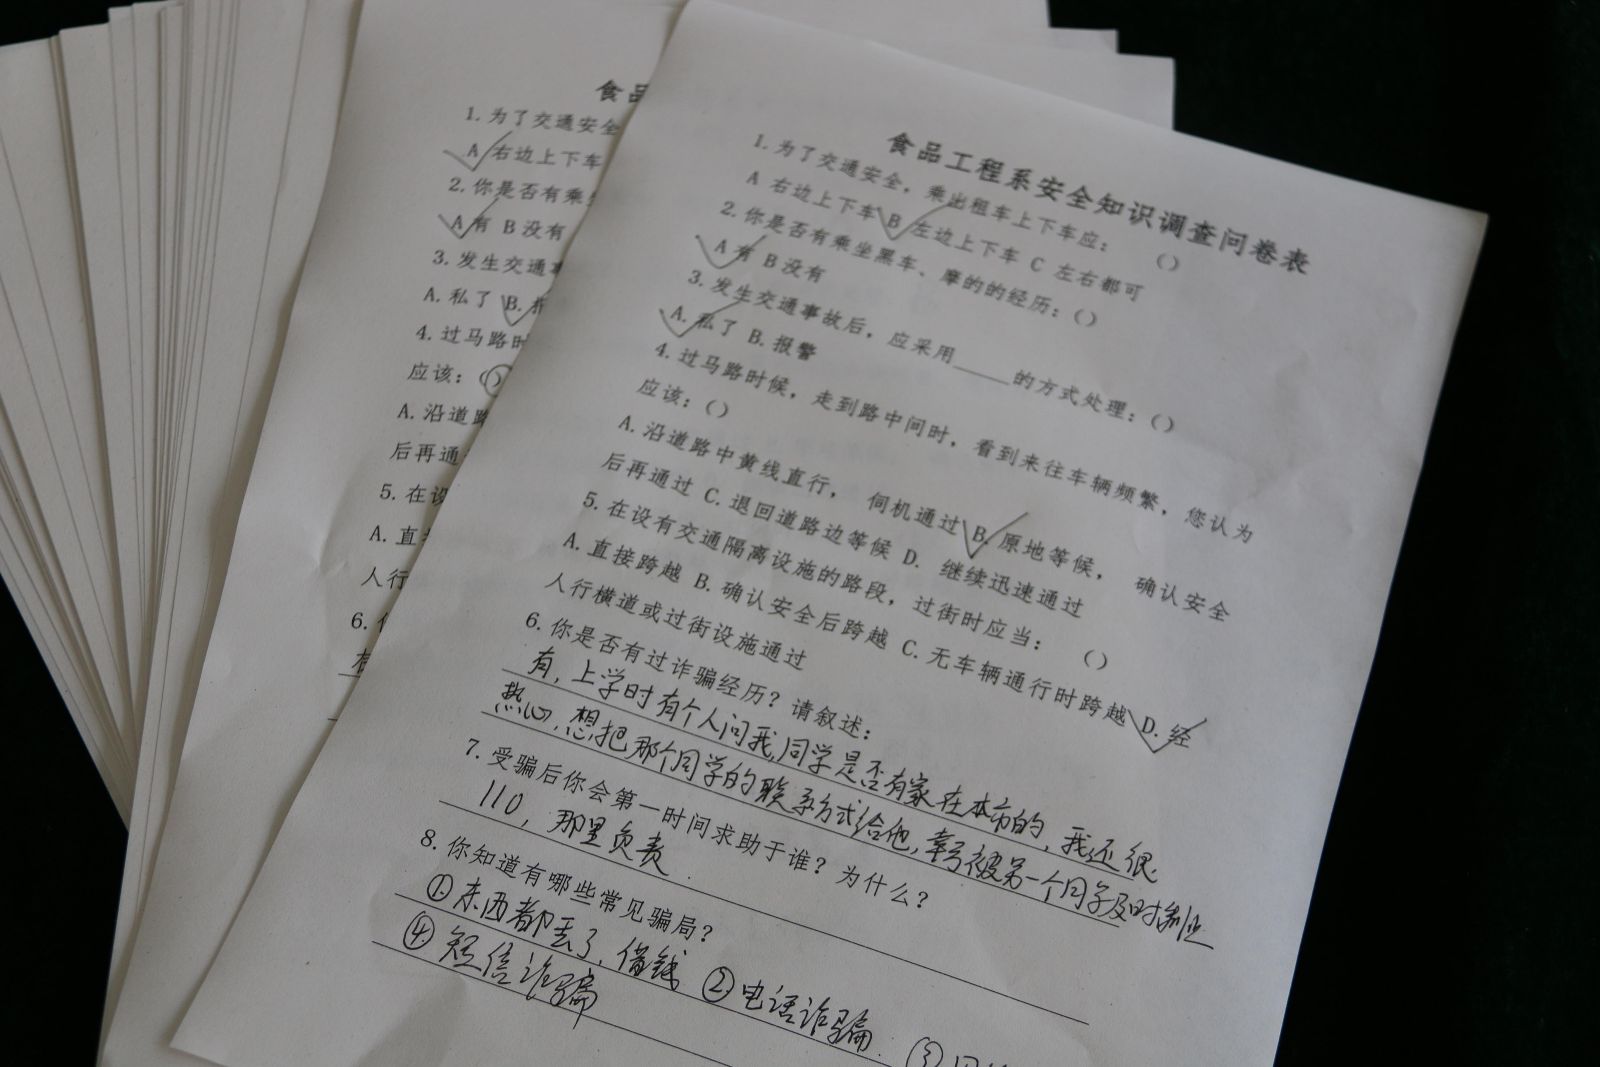 食品
1. 为了交通安全
A 右边上下车
2. 你是否有乘
A 有 B 没有
3. 发生交通事
A. 私了 B.
4. 过马路时
应该：（）
A. 沿道路
后再通
5. 在设
A. 直
人行
6.
食品工程系安全知识调查问卷表
1. 为了交通安全，乘出租车上下车应：（）
A 右边上下车 B 左边上下车 C 左右都可
2. 你是否有乘坐黑车、摩的的经历：（）
A 有 B 没有
3. 发生交通事故后，应采用______的方式处理：（）
A. 私了 B. 报警
4. 过马路时候，走到路中间时，看到来往车辆频繁，您认为
应该：（）
A. 沿道路中黄线直行， 伺机通过 B. 原地等候， 确认安全
后再通过 C. 退回道路边等候 D. 继续迅速通过
5. 在设有交通隔离设施的路段，过街时应当：（）
A. 直接跨越 B. 确认安全后跨越 C. 无车辆通行时跨越 D. 经
人行横道或过街设施通过
6. 你是否有过诈骗经历？请叙述：
有，上学时有个人问我，同学是否有家在本市的，我还很
热心，想把那个同学的联系方式给他，幸亏被另一个同学及时制止
7. 受骗后你会第一时间求助于谁？为什么？
110，那里负责
8. 你知道有哪些常见骗局？
①东西都丢了，借钱 ②电话诈骗 ③
④短信诈骗